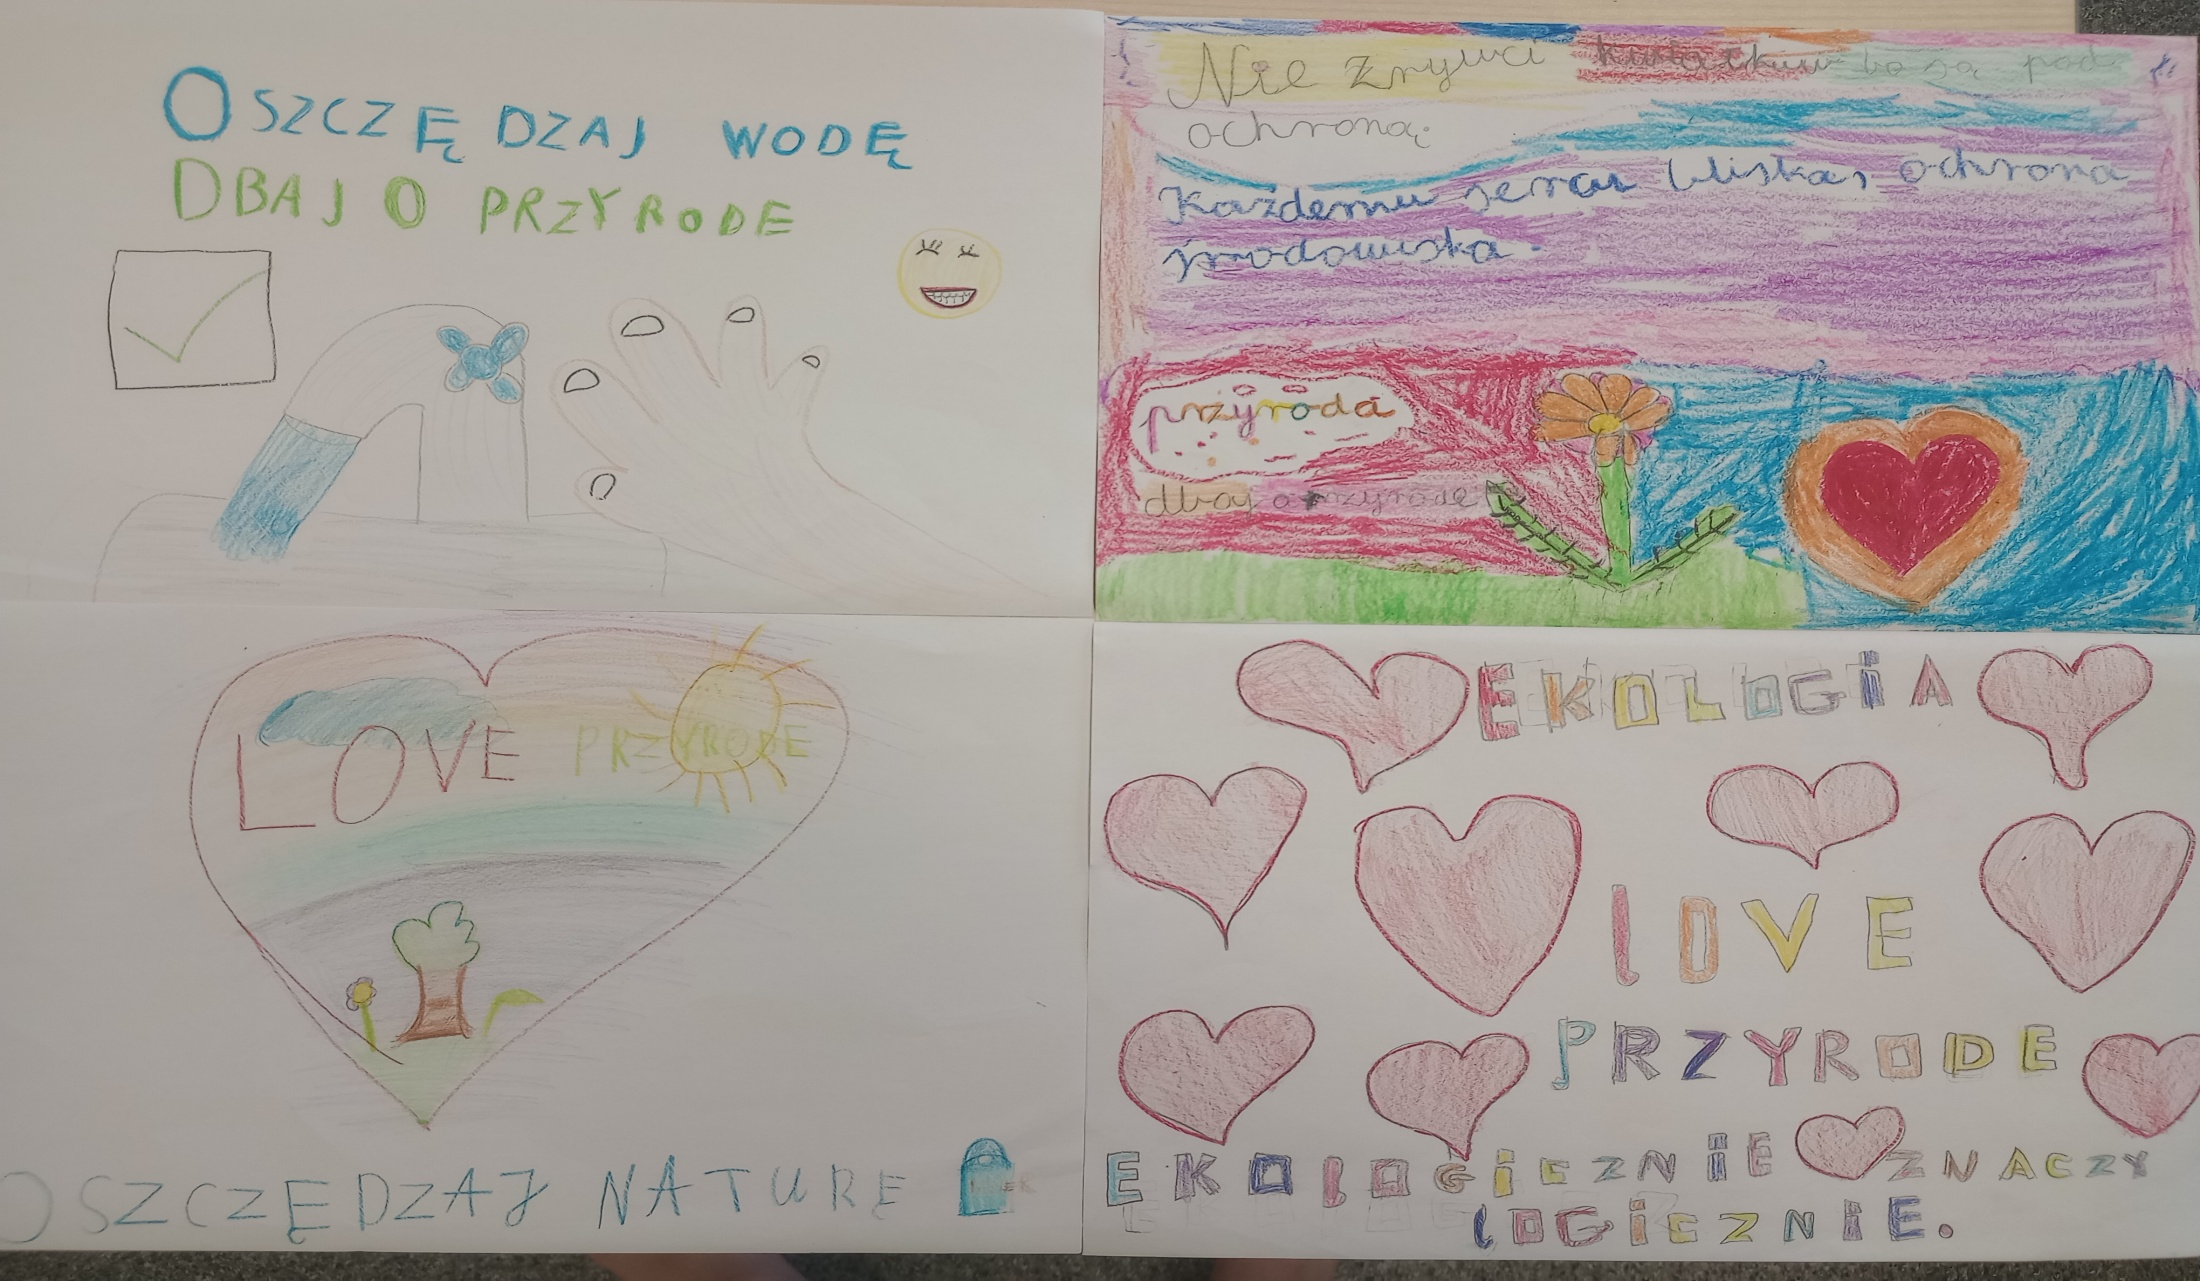 OSZCZĘDZAJ WODĘ
DBAJ O PRZYRODE
Nie zrywci kwiatkuw bo są pod
ochroną.
Każdemu sercu bliska, ochrona
środowiska.
przyroda
dbaj o przyrodę
LOVE PRZYRODE
OSZCZĘDZAJ NATURE
EKOLOGIA
lOVE
PRZYRODE
EKOlOGiCZNiE ZNACZY
lOGiCZNiE.